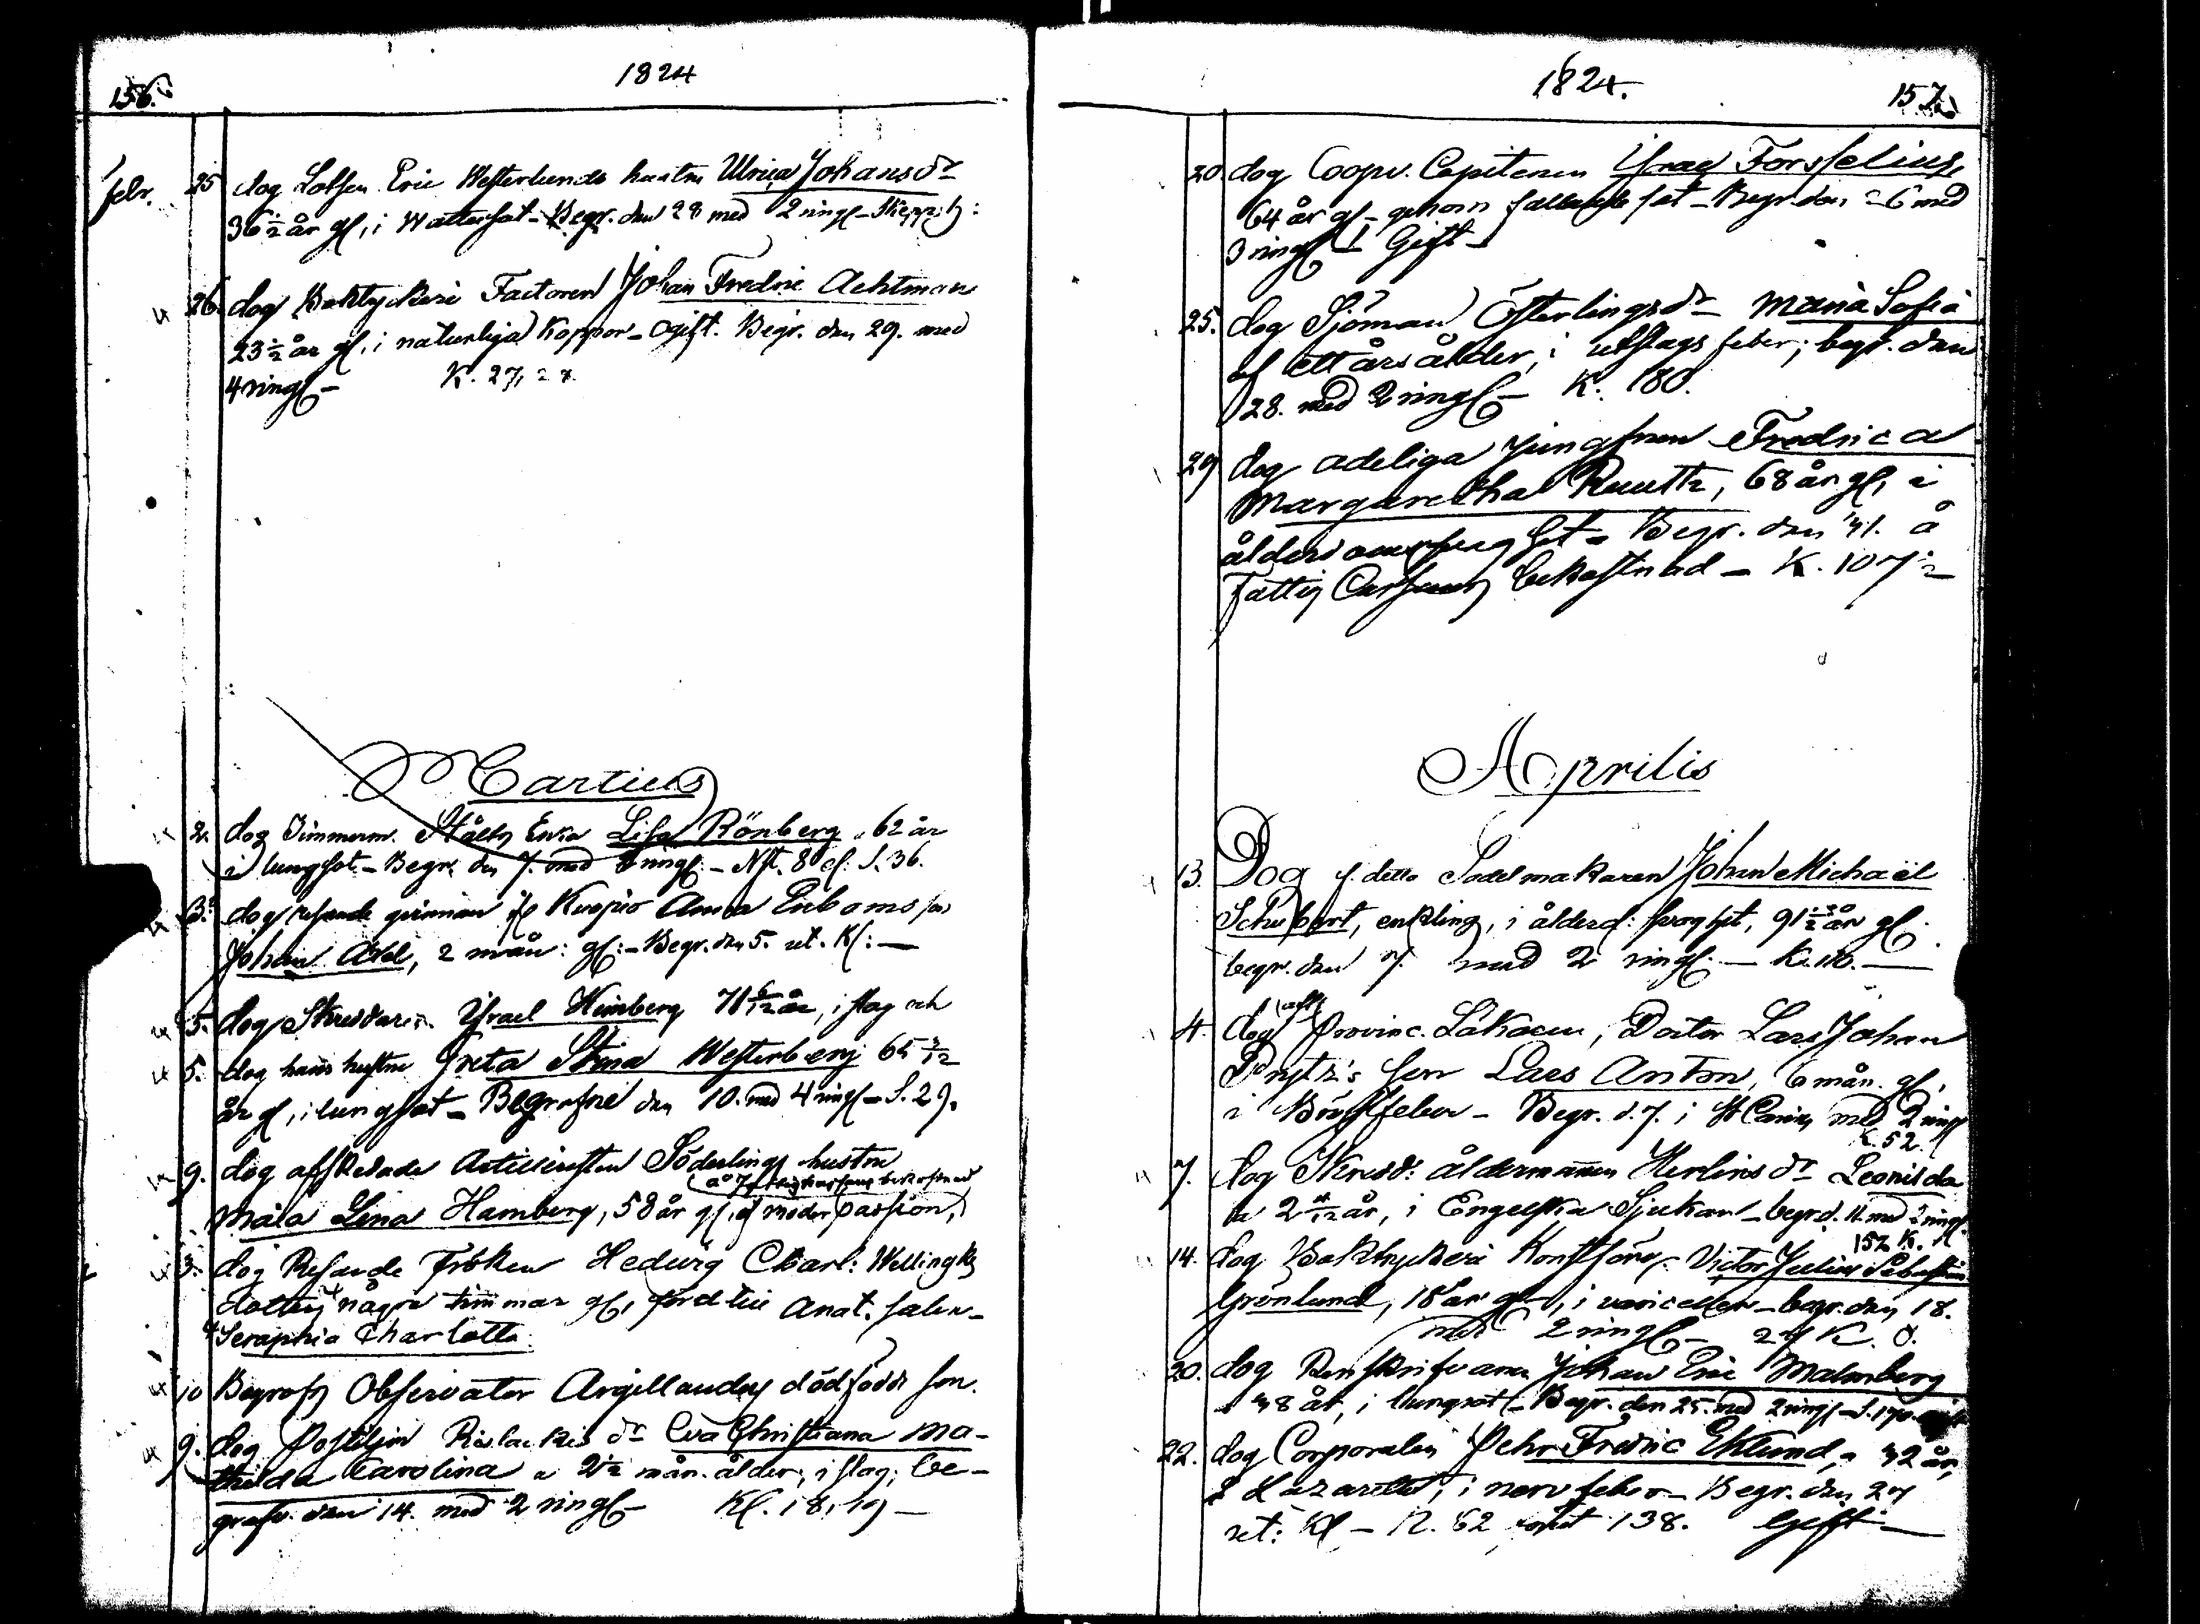 156.
1824
febr.
25 dog Lotsen Eric Westerlunds hustru Ulrica Johansdr
36 1/2 år gl, i Wattusot - Begr. den 28 med 2 ringl -
26. dog Boktryckeri Factoren Johan Fredric Achtman
23 1/2 år gl, i naturliga Koppor - Ogift. Begr. den 29. med
4 ringl - K. 27,
Martius
2. dog Timmerm. Ståls Enka Lisa Rönberg, 62 år
i lungsot - Begr. den 7. med 2 ringl: - Nft. 8 S. 36.
3. dog resande Kuopio Anna Enboms son
Johan Abel, 2 mån: gl: - Begr. den 5. ut. Kl: -
5. dog Skreddaren Israel Heinberg 71 6/12 år, i slag och
5. dog hans hustru Greta Stina Westerberg 65 3/12
år gl, i lungsot - Begrofne den 10. med 4 ringl - S. 29.
9. dog afskedade Artilleristen Söderlings hustru
å Fattigkassans bekostnad
Maja Lena Hamberg, 58 år gl, af moderpassion,
3. dog Resande Fröken Hedvig Charl: Wellingks
dotter några timmar gl, född uti Anat. salen -
Seraphia Charlotta
10 Begrofs Observator Argellanders dödfödde son.
9. dog Postiljon dr Eva Christiana Ma-
thilda Carolina, 2 1/2 mån. ålder, i slag; be-
grafv. den 14. med 2 ringl - Kl. 18, 19 -
1824.
157.
20. dog Coopv. Capitenen Israel Forsselius,
64 år gl - genom fallande sot - Begr. den 26 med
3 ringl - Gift -
25. dog Sjöman Österlings dr Maria Sofia
af ett års ålder, i utslags feber; begr. den
28. med 2 ringl - K. 180.
29 dog adeliga jungfrun Fredrica
Margaretha Ruuth, 68 år gl, i
ålderdoms - Begr. den 31. å
Fattig Cassans bekostnad - K. 107
Aprilis
13. Dog f. detta Sadelmakaren Johan Michaël
Schubert, enkling, i ålderd: 91 år gl.
begr. den 7. med 2 ringl. -
4. dog Provinc. Läkaren, Doctor Lars Johan
Prytz's son Lars Anton, 6 mån. gl,
i Bröstfeber - Begr. d. 7. i med 2 ringl
K. 52.
7. dog Skredd: åldermannen Herlins dr Leonilda
2 4/12 år, i Engelska Sjukan - begr. d. 11. med 2 ringl.
152 K.
14. dog Boktryckeri Konstför. Victor Julius Sebastian
Grönlund, 18 år gl, i varicellen - begr. den 18.
med 2 ringl - 27 K.
20. dog Renskrifvaren Johan Eric Malmberg
38 år, i lungsot - Begr. den 25. med 2 ringl - S. 170.
22. dog Corporalen Pehr Fredric Eklund, 32 år,
å Lazarettet, i nervfeber - Begr. den 27
ut: Kl - N. 62 138. Gift -